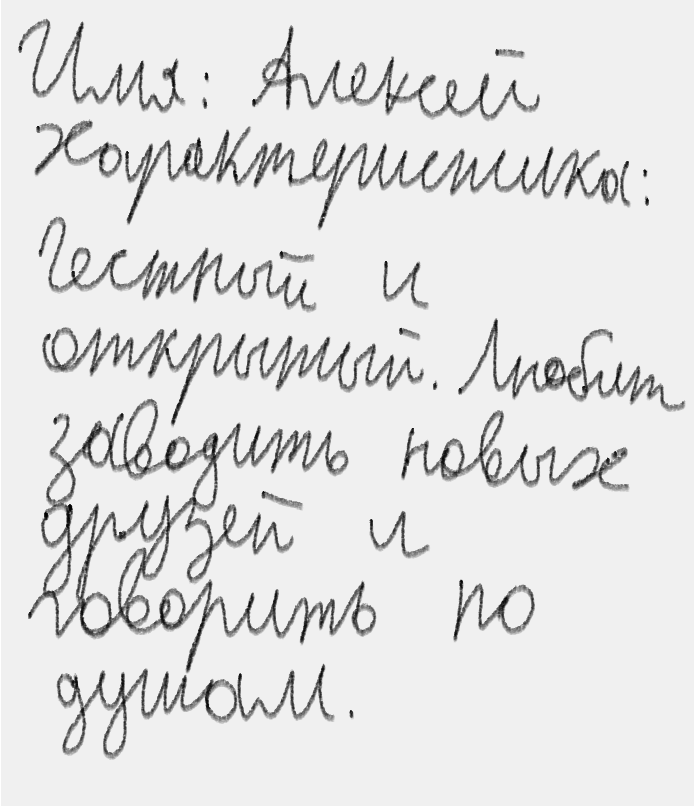 Имя: Алексей
Характеристика:
Честный и
открытый. Любит
заводить новых
друзей и
говорить по
душам.